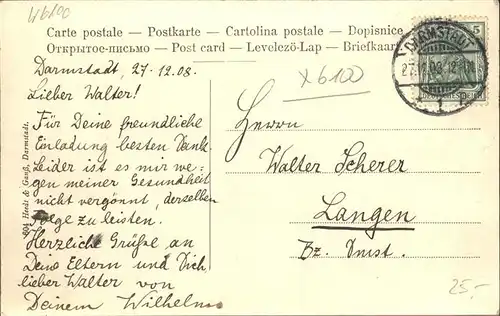 W6100
Carte postale – Postkarte – Cartolina postale – Dopisnice
Открытое-письмо – Post card – Levelező-Lap – Briefkaart
DARMSTADT
27.12.08.
1
5
Darmstadt, 27.12.08.
x610
Lieber Walter!
Für Deine freundliche
Einladung besten Dank.
Leider ist es mir we-
gen meiner Gesundheit
nicht vergönnt, derselben
Folge zu leisten.
Herzliche Grüße an
Deine Eltern und Dich,
lieber Walter von
Deinem Wilhelm
Herrn
Walter Scherer
Langen
Bz. Dmst.
Herdt & Gauß, Darmstadt.
25.-